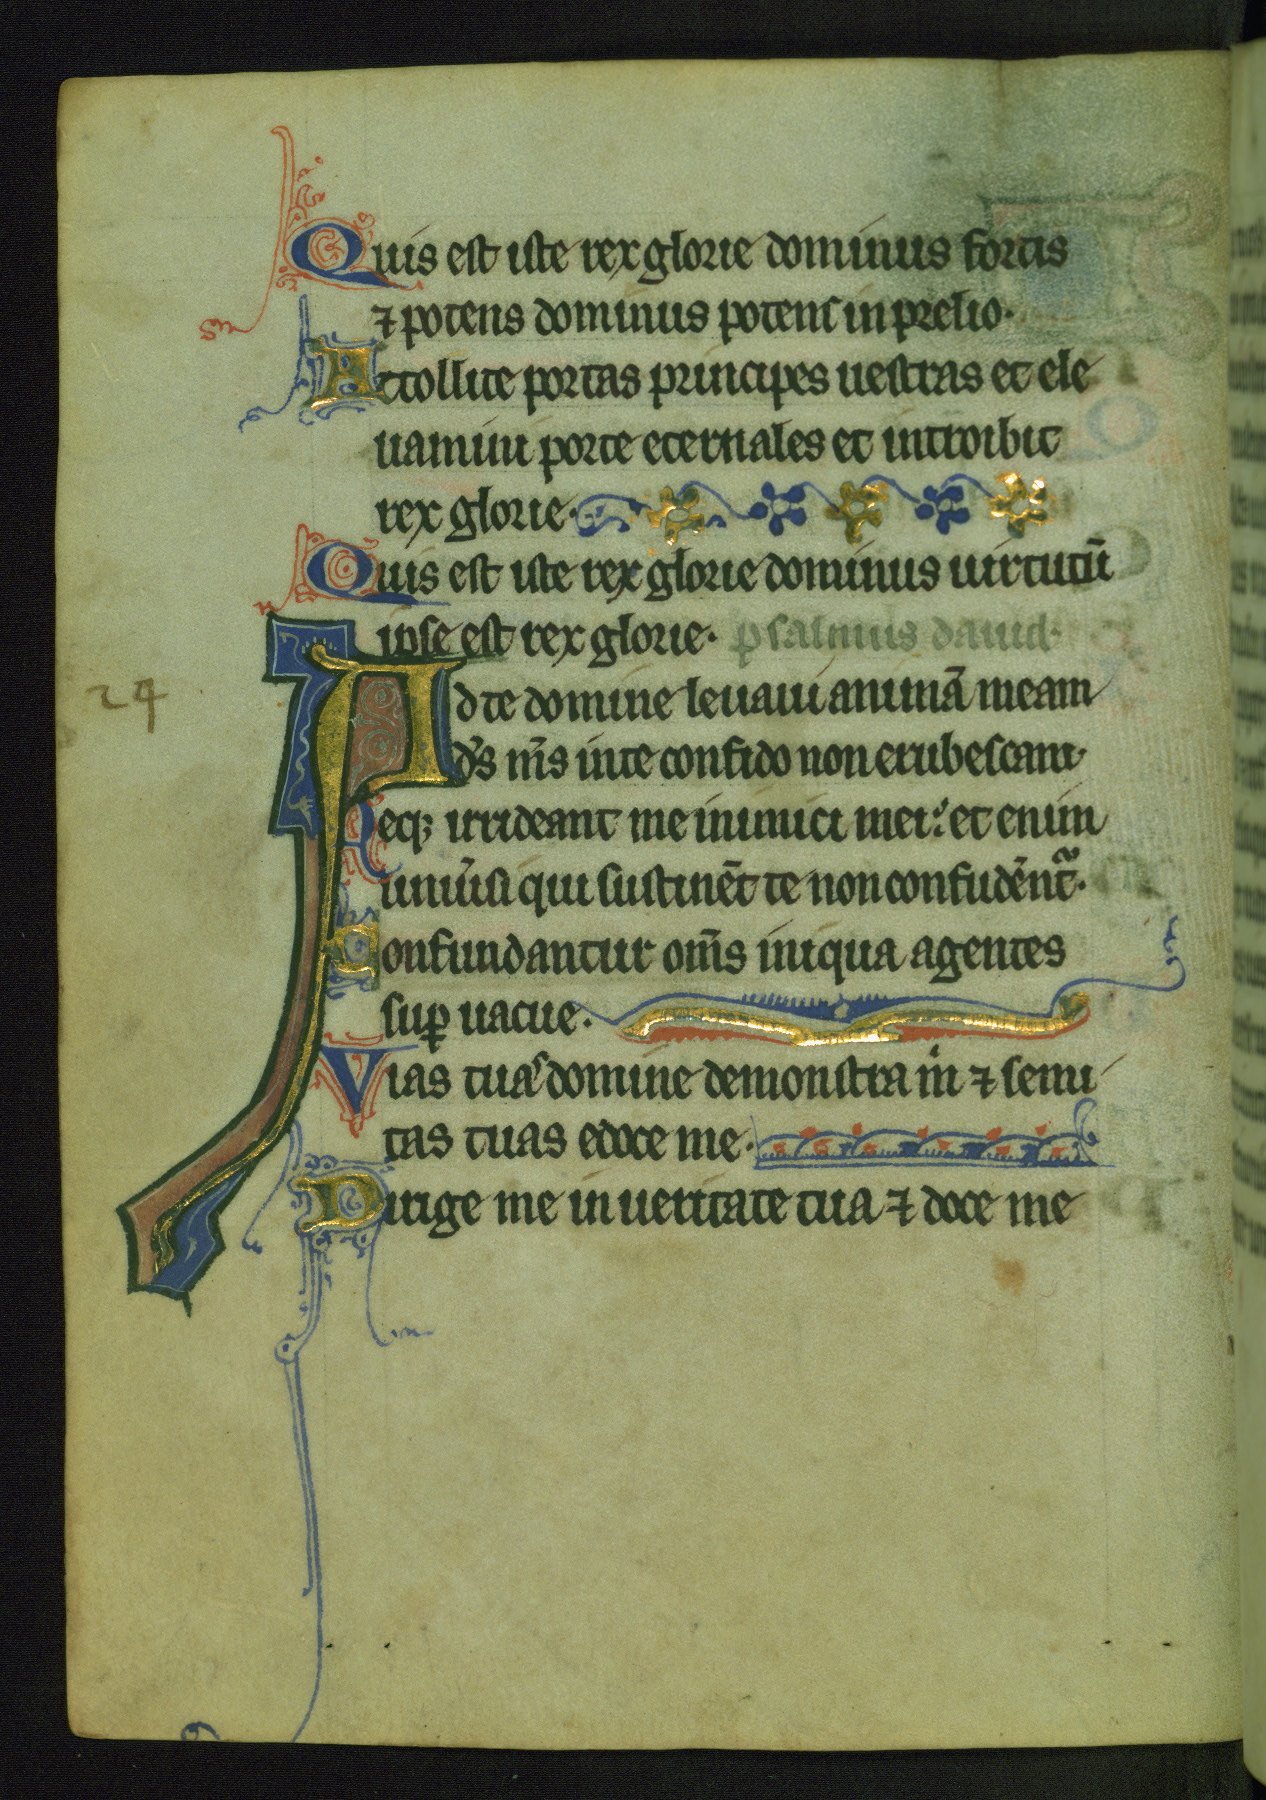 Quis est iste rex glorie dominus fortis
⁊ potens dominus potens in prelio.
Attollite portas principes uestras et ele
uamini porte eternales et introibit
rex glorie.
Quis est iste rex glorie dominus uirtutū
ipse est rex glorie. psalmus dauid.
24
Ad te domine leuaui animā meam
ds̄ ms̄ in te confido non erubescam.
Neq; irrideant me inimici mei: et enim
uniuˀsi qui sustinēt te non confudēnt᷑.
Confundantur om̄s iniqua agentes
suꝑ uacue.
Vias tuas domine demonstra m̄ ⁊ semi
tas tuas edoce me.
Dirige me in ueritate tua ⁊ doce me